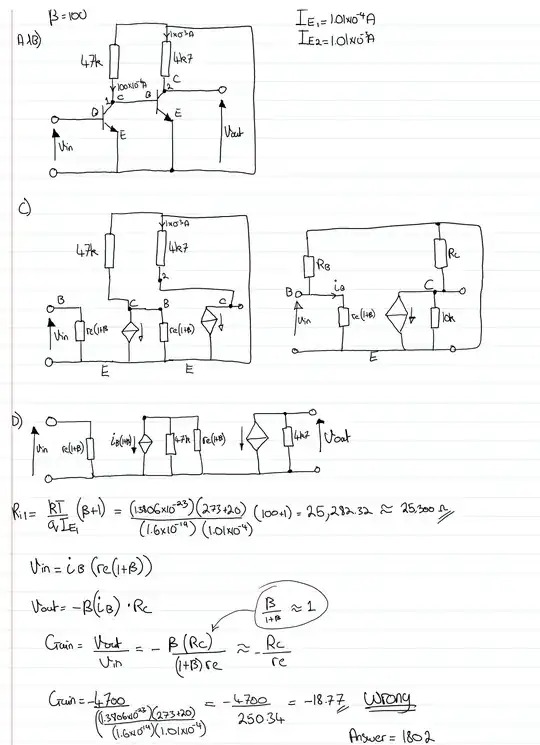 β=100
I_E1 = 1.01x10^-4 A
I_E2 = 1.01x10^-3 A
A&B)
1x10^-3 A
47k
4k7
C
2
100x10^-6 A
1
C
B
B
E
E
Vin
Vout
C)
1x10^-3 A
47k
4k7
2
C
B
C
B
Vin
re(1+β)
re(1+β)
E
E
RB
RC
B
iB
C
Vin
re(1+β)
10k
E
D)
Vin
re(1+β)
iB(1+β)
47k
re(1+β)
4k7
Vout
Ri1 = kT/qI_E1 (β+1) = (1.3806x10^-23)(273+20)/(1.6x10^-19)(1.01x10^-4) (100+1) = 25,282.32 ≈ 25,300 Ω
Vin = iB (re(1+β))
Vout = -β(iB) · Rc
β/1+β ≈ 1
Gain = Vout/Vin = - β(Rc)/(1+β)re ≈ - Rc/re
Gain = -4700/((1.3806x10^-23)(273+20)/(1.6x10^-19)(1.01x10^-4)) = -4700/250.34 = -18.77 Wrong
Answer = 1802